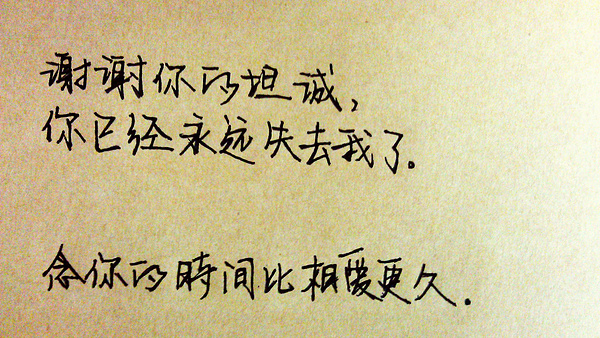 谢谢你的坦诚，
你已经永远失去我了.
念你的時间比相爱更久.